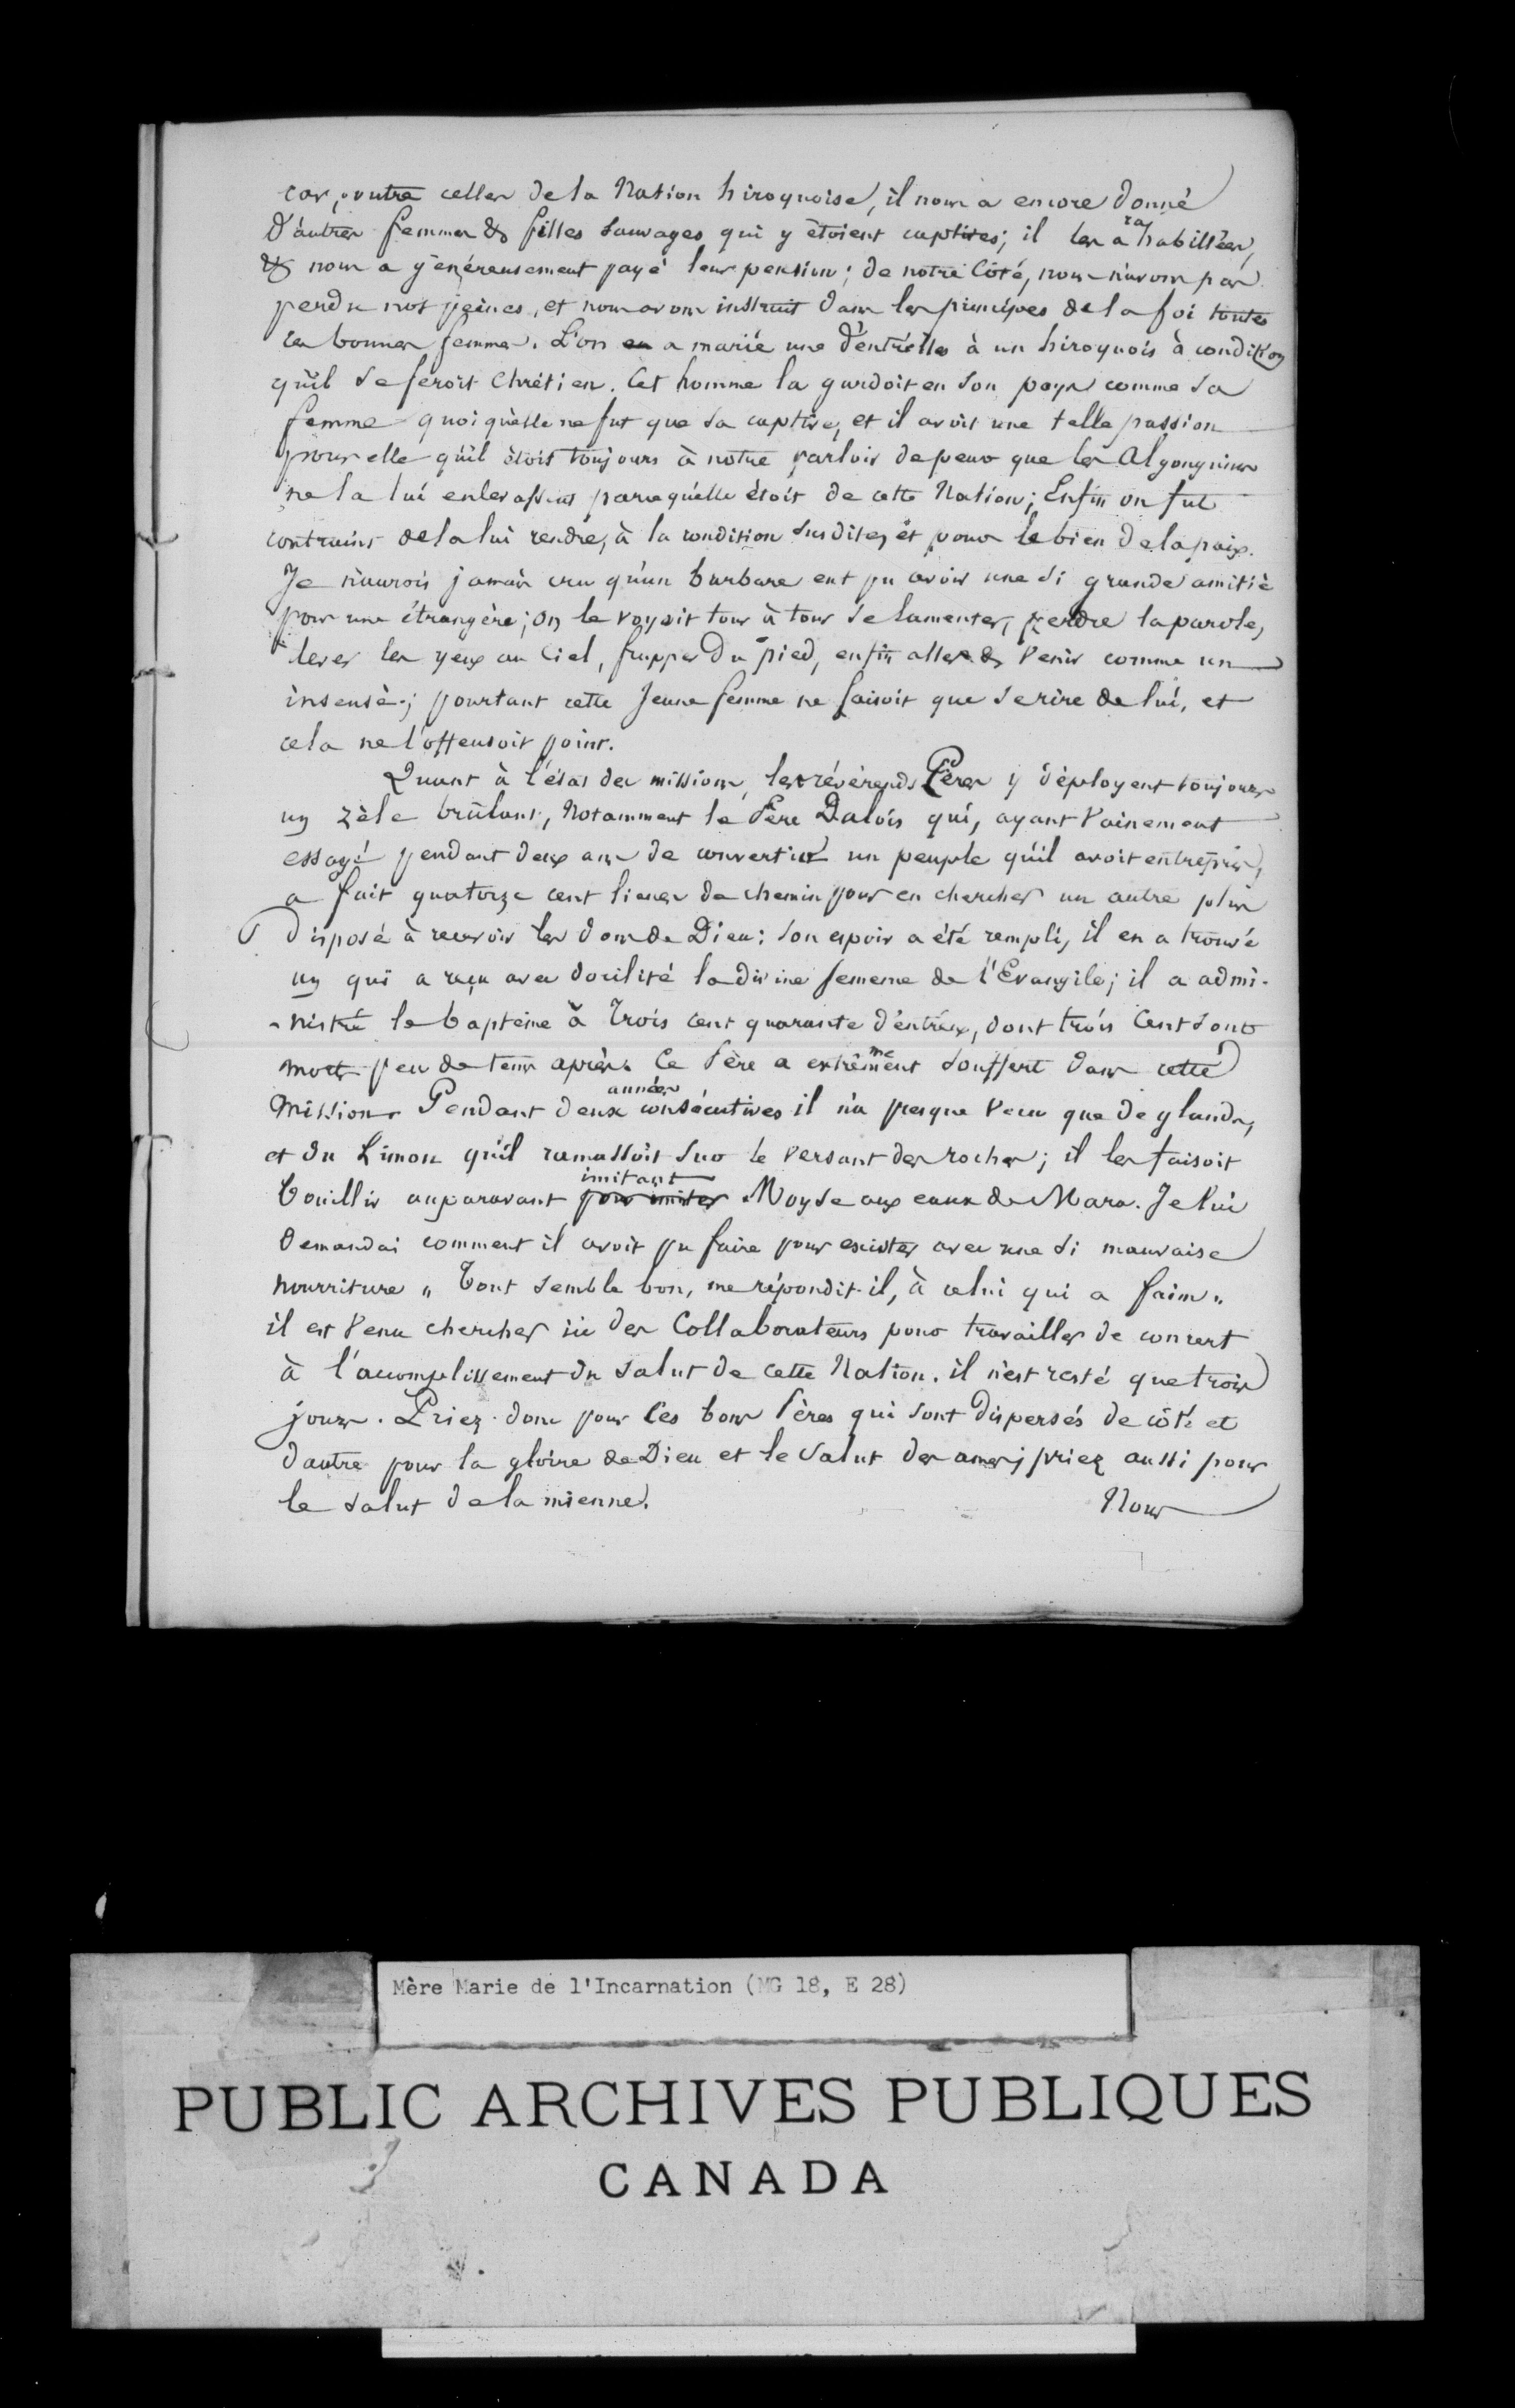 car, outre celles de la Nation hiroquoise, il nous a encore donné
d'autres femmes & filles Sauvages qui y étoient captives; il les a rahabillées,
& nous a généreusement payé leur pension; de notre Côté, nous n'avons pas
perdu nos peines, et nous avons instruit dans les principes de la foi toutes
ces bonnes femmes. L'on en a marié une d'entrelles à un hiroquois à condition
qu'il se feroit Chrétien. Cet homme la gardoit en son pays comme sa
femme quoiquèlle ne fut que sa captive, et il avoit une telle passion
pour elle qu'il étoit toujours à notre parloir de peur que les Algonquins
ne la lui enlevassent parcequ'elle étoit de cette Nation; Enfin on fut
contraint de la lui rendre, à la condition Susdite, et pour le bien de la paix.
Je n'aurois jamais cru qu'un barbare eut pu avoir une si grande amitié
pour une étrangère; on le voyoit tour à tour se lamenter, perdre la parole,
lever les yeux au Ciel, frapper du pied, enfin aller & Venir comme un
insensé; pourtant cette Jeune femme ne faisoit que se rire de lui, et
cela ne l'offensoit point.
Quant à l'état des missions, les révérends Pères y déployent toujours
un zèle brûlant, Notamment le Père Dalois qui, ayant Vainement
essayé pendant deux ans de convertir un peuple qu'il avoit entrepris,
a fait quatorze cent lieues de chemin pour en chercher un autre plus
disposé à recevoir les dons de Dieu: Son espoir a été rempli, il en a trouvé
un qui a reçu avec docilité la divine semence de l'Evangile; il a admi-
-nistré le baptème à Trois cent quarante d'entreux, dont trois Cent sont
morts peu de tems après. Ce Père a extrêmement souffert dans cette
Mission. Pendant deux années consécutives il n'a presque Vecu que de glands,
et du Limon qu'il ramassoit sur le versant des rochers; il les faisoit
bouillir auparavant pour imiter imitant Moyse aux eaux de Mara. Je lui
demandai comment il avoit pu faire pour exister avec une si mauvaise
nourriture " Tout semble bon, me répondit-il, à celui qui a faim "
il est Venu chercher ici des Collaborateurs pour travailler de concert
à l'accomplissement du salut de cette Nation. il n'est resté que trois
jours. Priez donc pour ces bons Pères qui sont dispersés de côté et
d'autre pour la gloire de Dieu et le Salut des ames; priez aussi pour
le salut de la mienne.
Nous
Mère Marie de l'Incarnation (MG 18, E 28)
PUBLIC ARCHIVES PUBLIQUES
CANADA